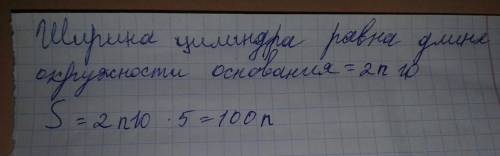 Ширина цилиндра равна длине
окружности основания = 2п 10
S = 2п10 · 5 = 100п